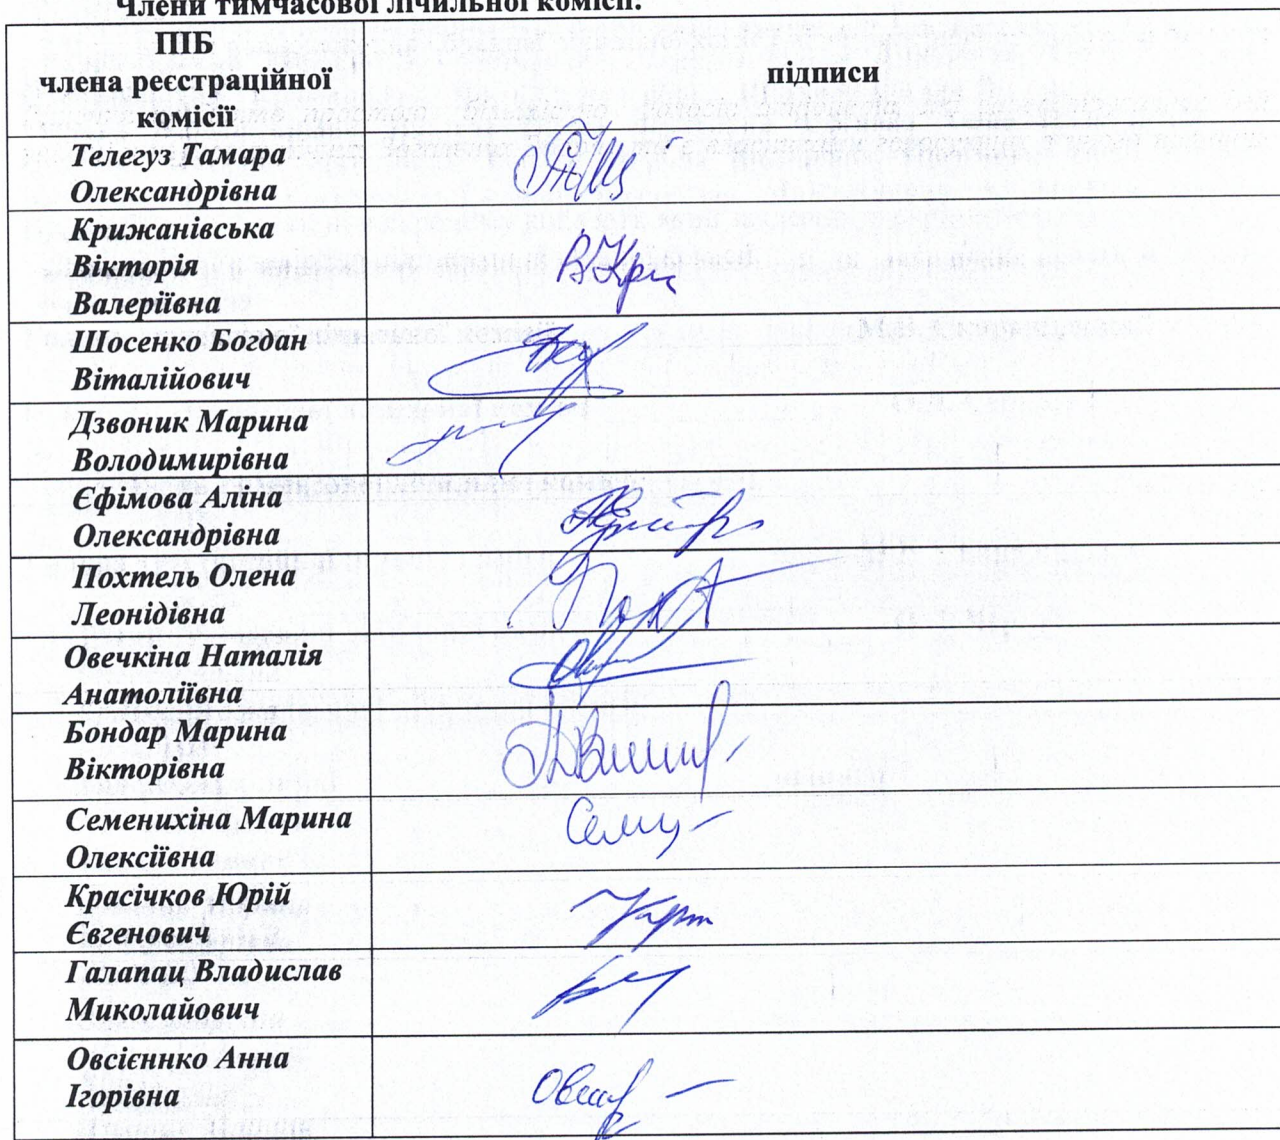 Члени тимчасової лічильної комісії:
ПІБ
члена реєстраційної
комісії
підписи
Телегуз Тамара
Олександрівна
Крижанівська
Вікторія
Валеріївна
Шосенко Богдан
Віталійович
Дзвоник Марина
Володимирівна
Єфімова Аліна
Олександрівна
Похтель Олена
Леонідівна
Овечкіна Наталія
Анатоліївна
Бондар Марина
Вікторівна
Семенихіна Марина
Олексіївна
Красічков Юрій
Євгенович
Галапац Владислав
Миколайович
Овсієннко Анна
Ігорівна